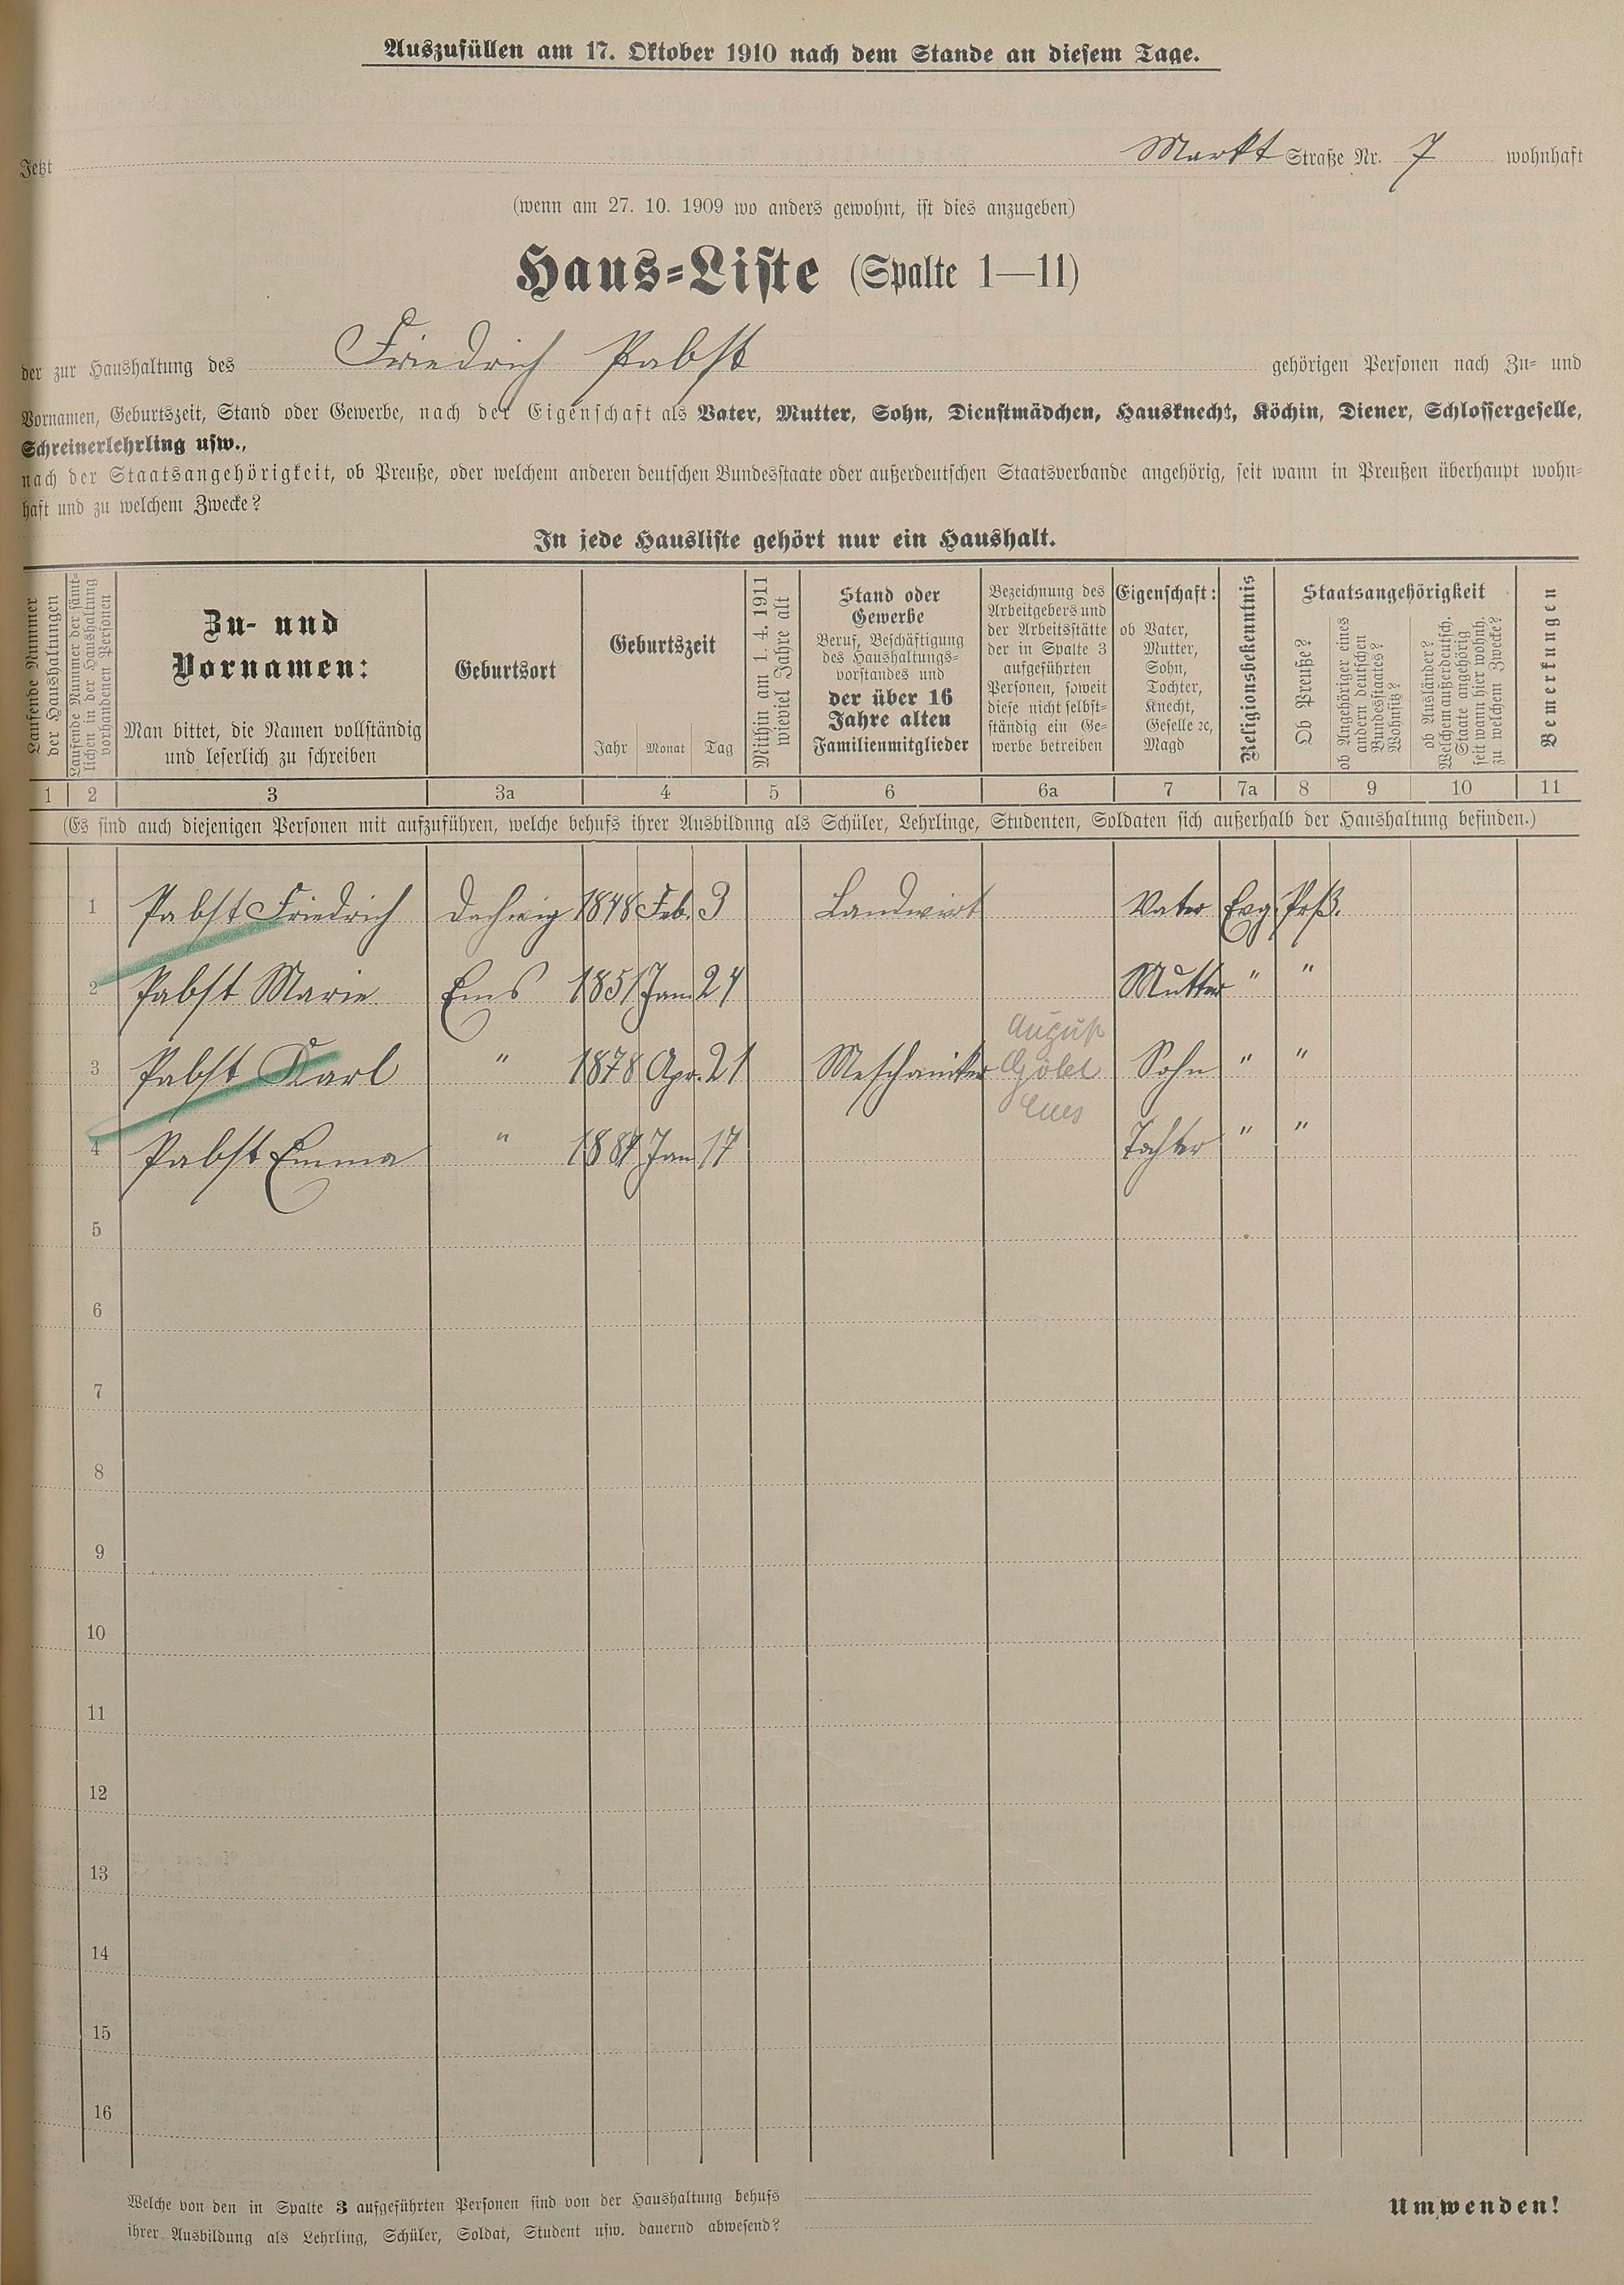 Auszufüllen am 17. Oktober 1910 nach dem Stande an diesem Tage.
Jetzt Markt Straße Nr. 7 wohnhaft
(wenn am 27. 10. 1909 wo anders gewohnt, ist dies anzugeben)
Haus-Liste (Spalte 1—11)
der zur Haushaltung des Friedrich Pabst gehörigen Personen nach Zu- und
Vornamen, Geburtszeit, Stand oder Gewerbe, nach der Eigenschaft als Vater, Mutter, Sohn, Dienstmädchen, Hausknecht, Köchin, Diener, Schlossergeselle,
Schreinerlehrling usw.,
nach der Staatsangehörigkeit, ob Preuße, oder welchem anderen deutschen Bundesstaate oder außerdeutschen Staatsverbande angehörig, seit wann in Preußen überhaupt wohn-
haft und zu welchem Zwecke?
In jede Hausliste gehört nur ein Haushalt.
Laufende Nummer
der Haushaltungen
Laufende Nummer der sämt-
lichen in der Haushaltung
vorhandenen Personen
Zu- und
Vornamen:
Man bittet, die Namen vollständig
und leserlich zu schreiben
Geburtsort
Geburtszeit
Jahr Monat Tag
Mithin am 1. 4. 1911
wieviel Jahre alt
Stand oder
Gewerbe
Beruf, Beschäftigung
des Haushaltungs-
vorstandes und
der über 16
Jahre alten
Familienmitglieder
Bezeichnung des
Arbeitgebers und
der Arbeitsstätte
der in Spalte 3
aufgeführten
Personen, soweit
diese nicht selbst-
ständig ein Ge-
werbe betreiben
Eigenschaft:
ob Vater,
Mutter,
Sohn,
Tochter,
Knecht,
Geselle ꝛc,
Magd
Religionsbekenntnis
Staatsangehörigkeit
Ob Preuße?
ob Angehöriger eines
andern deutschen
Bundesstaates?
Wohnsitz?
ob Ausländer?
Welchem außerdeutsch.
Staate angehörig
seit wann hier wohnh.
zu welchem Zwecke?
Bemerkungen
1 2 3 3a 4 5 6 6a 7 7a 8 9 10 11
(Es sind auch diejenigen Personen mit aufzuführen, welche behufs ihrer Ausbildung als Schüler, Lehrlinge, Studenten, Soldaten sich außerhalb der Haushaltung befinden.)
1 Pabst Friedrich 1848 Feb. 3 Landwirt Vater Evg. Prß.
2 Pabst Marie Ems 1851 Jan 24 Mutter " "
3 Pabst Karl " 1878 Apr. 21 Meschaniker August Göbel Ems Sohn " "
4 Pabst Emma " Jan 17 Tochter " "
5
6
7
8
9
10
11
12
13
14
15
16
Welche von den in Spalte 3 aufgeführten Personen sind von der Haushaltung behufs
ihrer Ausbildung als Lehrling, Schüler, Soldat, Student usw. dauernd abwesend?
Umwenden!